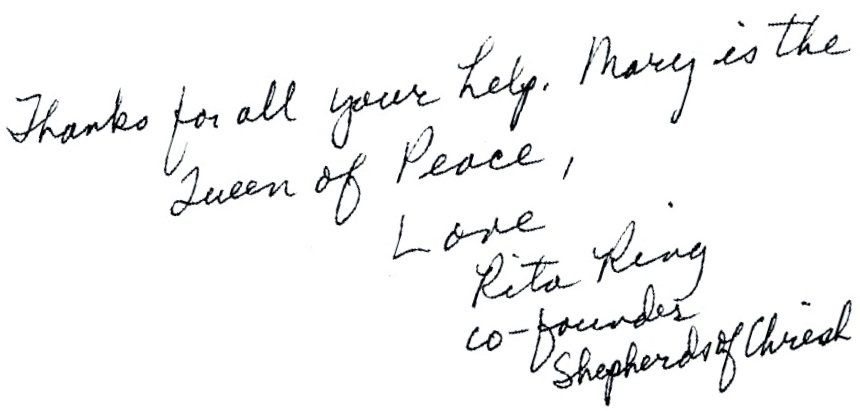 Thanks for all your help. Mary is the
Queen of Peace,
Love
Rita Ring
co-founder
Shepherds of Christ